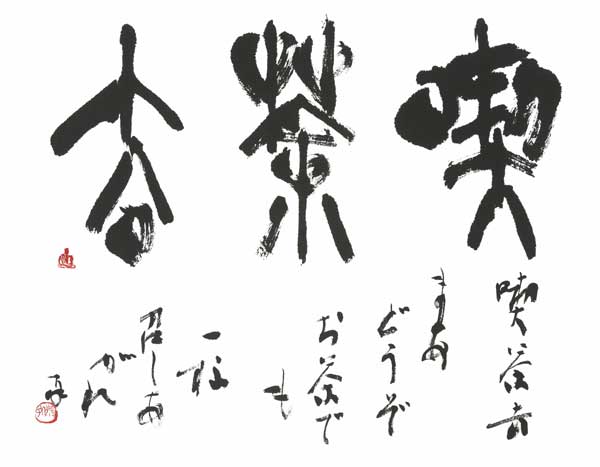 喫茶去
喫茶去
まあ
どうぞ
お茶で
も
一
召しあ
がれ